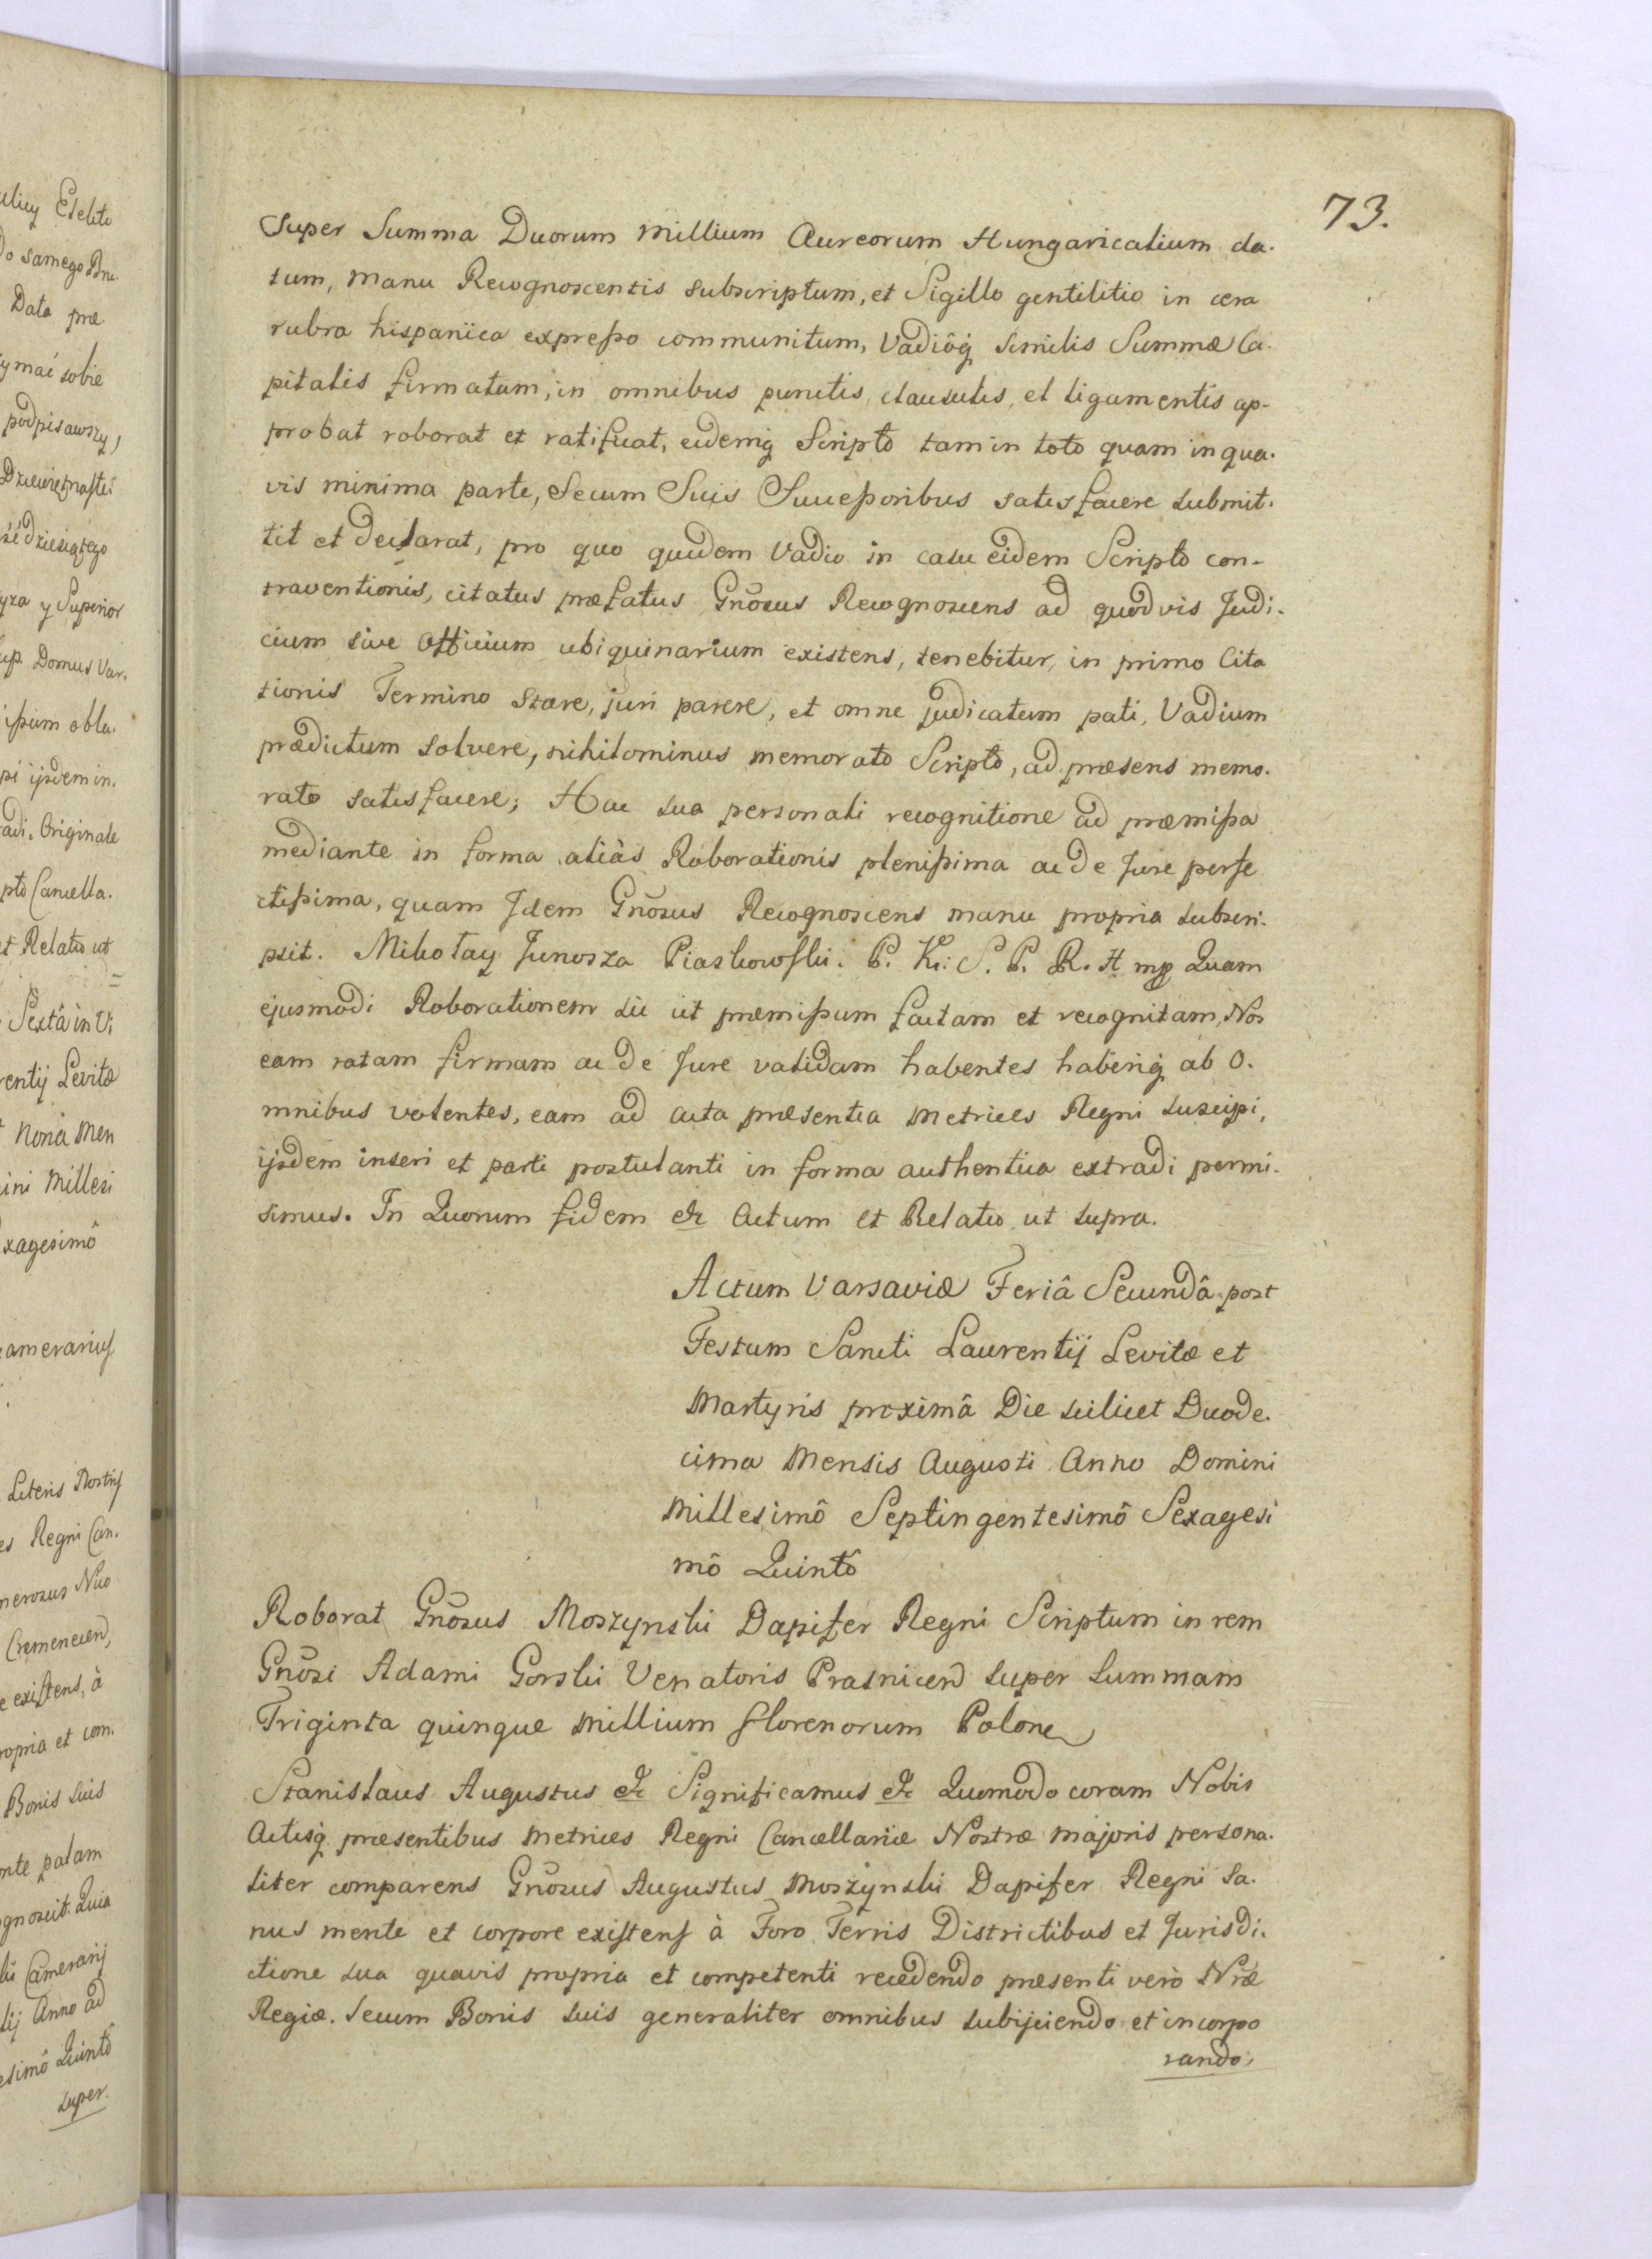 73.
Super Summa Duorum Millium Aureorum Hungaricalium da-
tum, manu Recognoscentis subscriptum, et Sigillo gentilitio in cera
rubra hispanica expresso communitum, Vadiôq́ similis Summæ Ca-
pitalis firmatum, in omnibus punctis, clausulis, et ligamentis ap-
probat roborat et ratificat, eidemq́ Scripto tam in toto quam in qua-
vis minima parte, Secum Suis Successoribus satisfacere submit-
tit et declarat, pro quo quidem Vadio in casu eidem Scripto con-
traventionis, citatus præfatus Gnõsus Recognoscens ad quodvis Judi-
cium sive Officium ubiquinarium existens, tenebitur, in primo Cita
tionis Termino stare, juri parere, et omne judicatum pati, Vadium
prædictum solvere, nihilominus memorato Scripto, ad præsens memo-
rato satisfacere; Hac sua personali recognitione ad præmissa
mediante in forma alias Roborationis plenissima ac de Jure perfe
ctissima, quam Idem Gnõsus Recognoscens manu propria subscri-
psit. Mikołay Junosza Piaskowski. P. K: S. P. R. H mp Quam
ejusmodi Roborationem sic ut præmissum factam et recognitam, Nos
eam ratam firmam ac de Jure validam habentes haberiq́ ab o-
mnibus volentes, eam ad acta præsentia Metrices Regni suscipi,
ijsdem inseri et parti postulanti in forma authentica extradi permi-
simus. In Quorum fidem &c Actum et Relatio ut supra.
Actum Varsaviæ Feriâ Secundâ post
Festum Sancti Laurentij Levitæ et
Martyris proximâ Die scilicet Duode-
cima Mensis Augusti Anno Domini
Millesimô Septingentesimô Sexagesi
mô Quintô
Roborat Gnõsus Moszynski Dapifer Regni Scriptum in rem
Gnõsi Adami Gorski Venatoris Prasnicen super summam
Triginta quinque Millium florenorum Polone
Stanislaus Augustus &c Significamus &c Quomodo coram Nobis
Actisq́ præsentibus Metrices Regni Cancellariæ Nostræ majoris persona-
liter comparens Gnõsus Augustus Moszynski Dapifer Regni sa-
nus mente et corpore existens à Foro Terris Districtibus et Jurisdi-
ctione sua quavis propria et competenti recedendo præsenti verò Nr̃æ
Regiæ. Secum Bonis suis generaliter omnibus subijciendo et incorpo
rando,